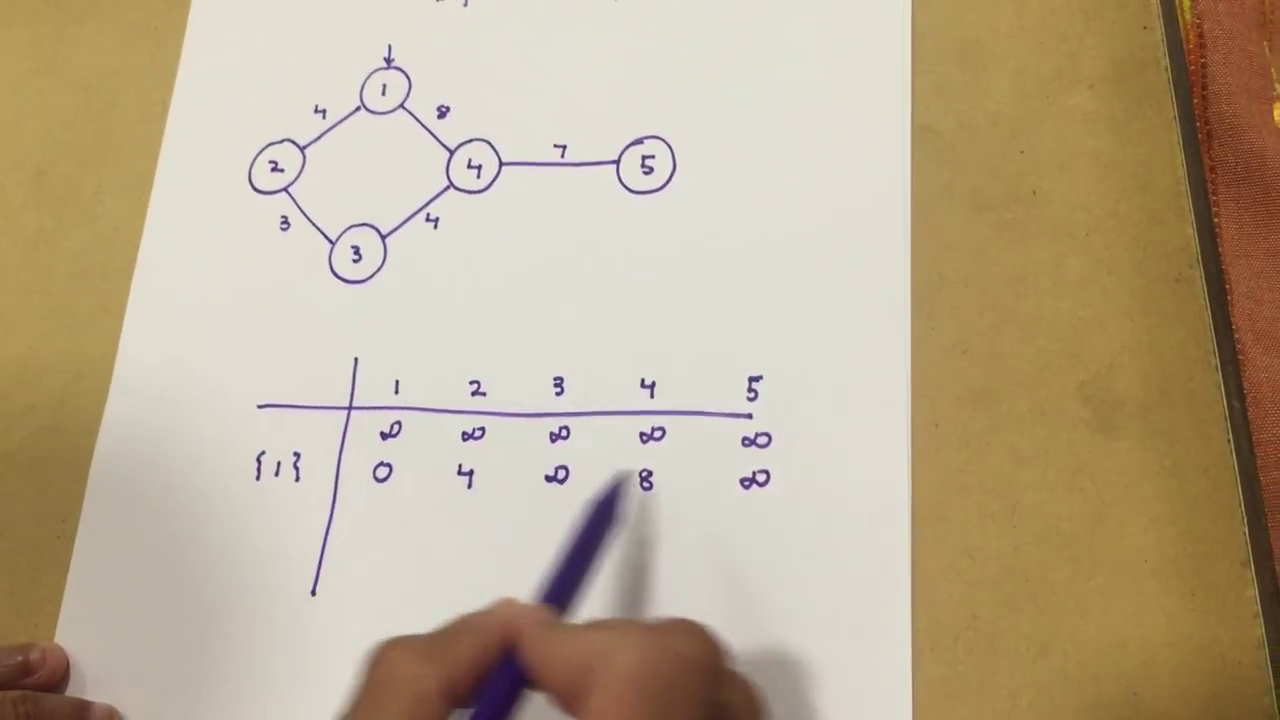 1
4 8
2 4 7 5
3 4
3
1 2 3 4 5
∞ ∞ ∞ ∞ ∞
{1} 0 4 ∞ 8 ∞